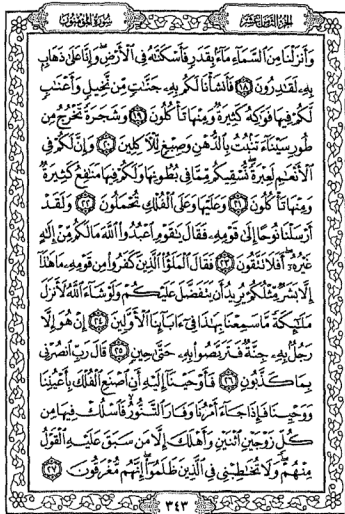 الجزء الثامن عشر
سورة المؤمنون
وَأَنزَلْنَا مِنَ السَّمَاءِ مَاءً بِقَدَرٍ فَأَسْكَنَّاهُ فِي الْأَرْضِ وَإِنَّا عَلَىٰ ذَهَابٍ
بِهِ لَقَادِرُونَ ١٨ فَأَنشَأْنَا لَكُم بِهِ جَنَّاتٍ مِّن نَّخِيلٍ وَأَعْنَابٍ
لَّكُمْ فِيهَا فَوَاكِهُ كَثِيرَةٌ وَمِنْهَا تَأْكُلُونَ ١٩ وَشَجَرَةً تَخْرُجُ مِن
طُورِ سَيْنَاءَ تَنبُتُ بِالدُّهْنِ وَصِبْغٍ لِّلْآكِلِينَ ٢٠ وَإِنَّ لَكُمْ فِي
الْأَنْعَامِ لَعِبْرَةً نُّسْقِيكُم مِّمَّا فِي بُطُونِهَا وَلَكُمْ فِيهَا مَنَافِعُ كَثِيرَةٌ
وَمِنْهَا تَأْكُلُونَ ٢١ وَعَلَيْهَا وَعَلَى الْفُلْكِ تُحْمَلُونَ ٢٢ وَلَقَدْ
أَرْسَلْنَا نُوحًا إِلَىٰ قَوْمِهِ فَقَالَ يَا قَوْمِ اعْبُدُوا اللَّهَ مَا لَكُم مِّنْ إِلَٰهٍ
غَيْرُهُ أَفَلَا تَتَّقُونَ ٢٣ فَقَالَ الْمَلَؤُا الَّذِينَ كَفَرُوا مِن قَوْمِهِ مَا هَٰذَا
إِلَّا بَشَرٌ مِّثْلُكُمْ يُرِيدُ أَن يَتَفَضَّلَ عَلَيْكُمْ وَلَوْ شَاءَ اللَّهُ لَأَنزَلَ
مَلَائِكَةً مَّا سَمِعْنَا بِهَٰذَا فِي آبَائِنَا الْأَوَّلِينَ ٢٤ إِنْ هُوَ إِلَّا
رَجُلٌ بِهِ جِنَّةٌ فَتَرَبَّصُوا بِهِ حَتَّىٰ حِينٍ ٢٥ قَالَ رَبِّ انصُرْنِي
بِمَا كَذَّبُونِ ٢٦ فَأَوْحَيْنَا إِلَيْهِ أَنِ اصْنَعِ الْفُلْكَ بِأَعْيُنِنَا
وَوَحْيِنَا فَإِذَا جَاءَ أَمْرُنَا وَفَارَ التَّنُّورُ فَاسْلُكْ فِيهَا مِن
كُلٍّ زَوْجَيْنِ اثْنَيْنِ وَأَهْلَكَ إِلَّا مَن سَبَقَ عَلَيْهِ الْقَوْلُ
مِنْهُمْ وَلَا تُخَاطِبْنِي فِي الَّذِينَ ظَلَمُوا إِنَّهُم مُّغْرَقُونَ ٢٧
٣٤٣